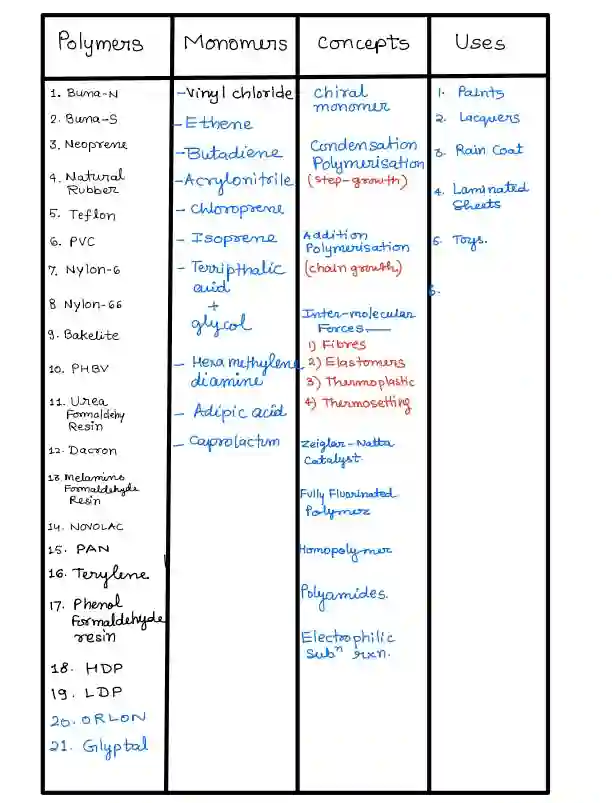 Polymers
Monomers
Concepts
Uses
1. Buna-N
2. Buna-S
3. Neoprene
4. Natural
Rubber
5. Teflon
6. PVC
7. Nylon-6
8 Nylon-66
9. Bakelite
10. PHBV
11. Urea
Formaldehy
Resin
12. Dacron
13. Melamine
Formaldehyde
Resin
14. NOVOLAC
15. PAN
16. Terylene
17. Phenol
Formaldehyde
resin
18. HDP
19. LDP
20. ORLON
21. Glyptal
-Vinyl chloride
-Ethene
-Butadiene
-Acrylonitrile
- Chloroprene
- Isoprene
- Terripthalic
acid
+
glycol
- Hexa methylene
diamine
- Adipic acid
- Caprolactum
Chiral
monomer
Condensation
Polymerisation
(step-growth)
Addition
Polymerisation
(chain growth)
Inter-molecular
Forces
1) Fibres
2) Elastomers
3) Thermoplastic
4) Thermosetting
Zeigler-Natta
Catalyst.
Fully Fluorinated
Polymer
Homopolymer
Polyamides.
Electrophilic
Subⁿ rxn.
1. Paints
2. Lacquers
3. Rain Coat
4. Laminated
Sheets
5. Toys.
6.